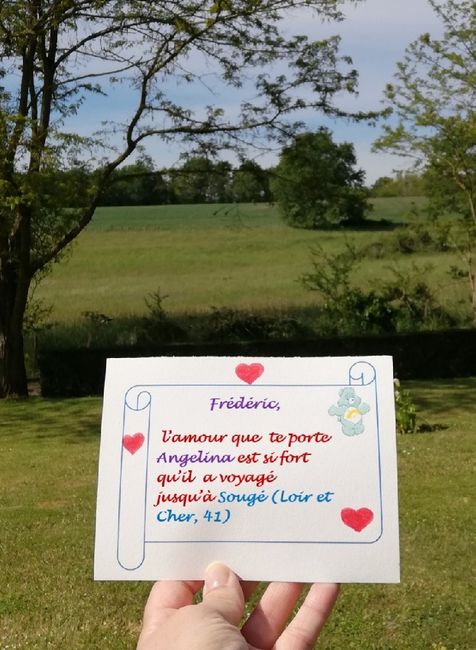 Frédéric,
l'amour que te porte
Angelina est si fort
qu'il a voyagé
jusqu'à Sougé (Loir et
Cher, 41)